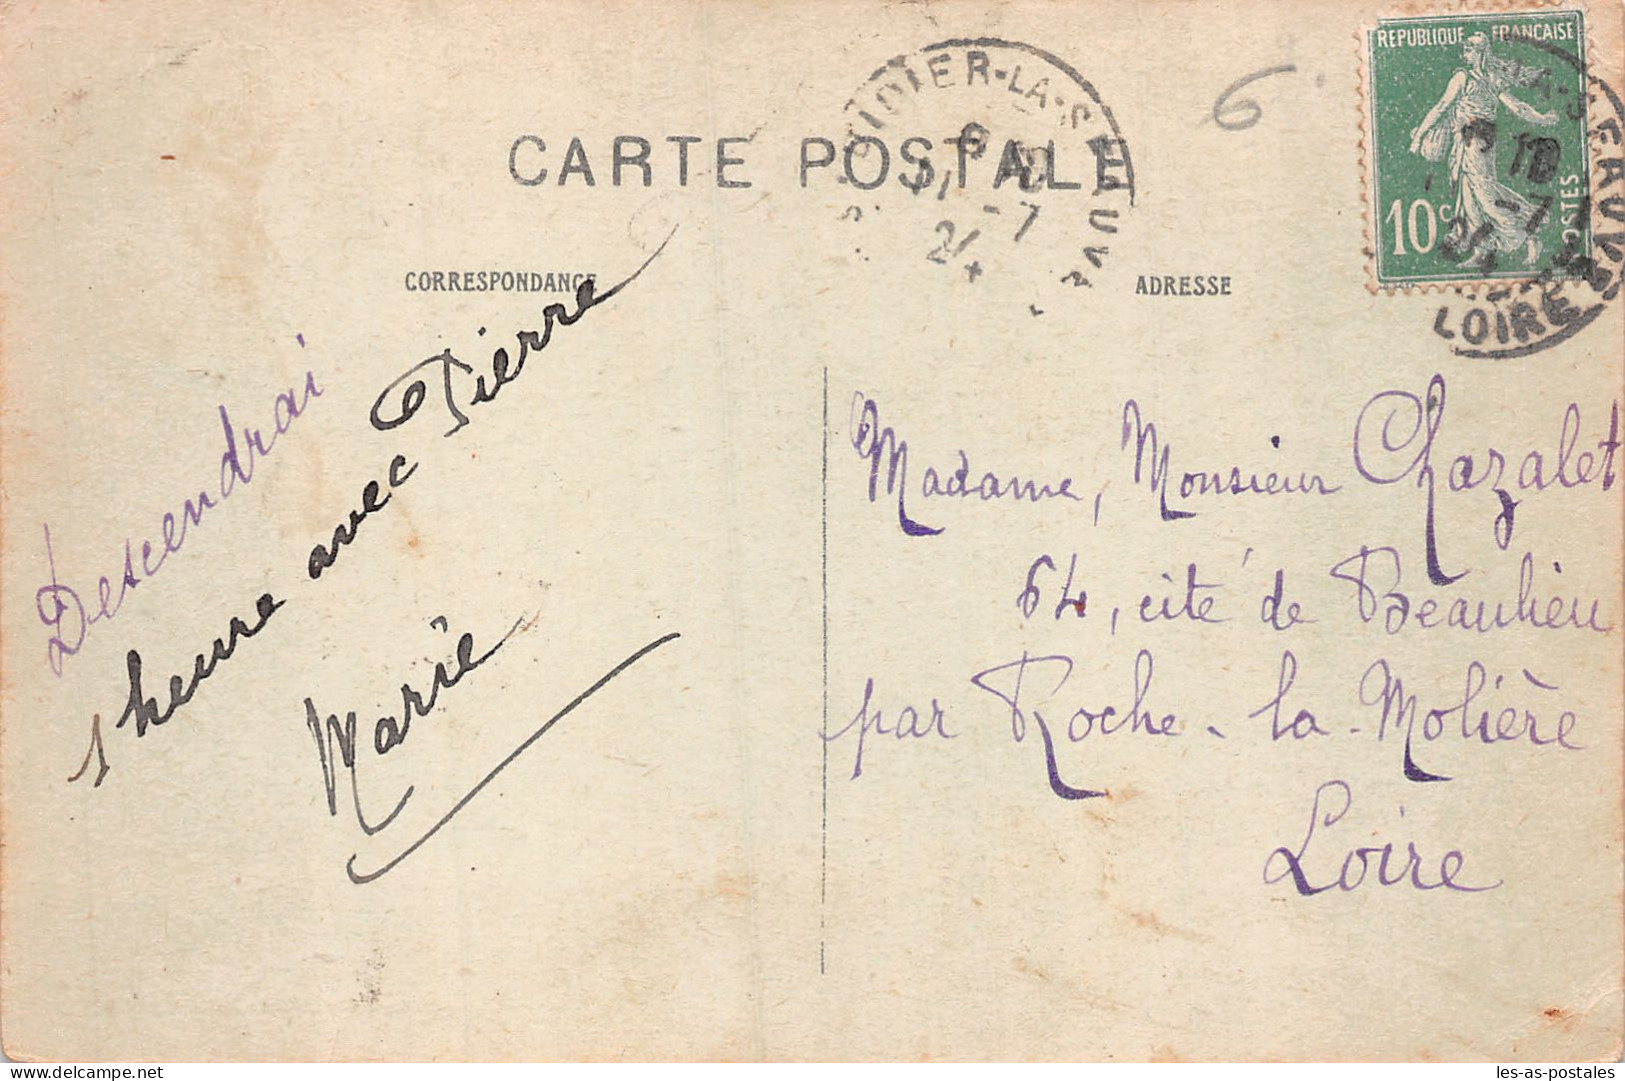 CARTE POSTALE
CORRESPONDANCE
ADRESSE
REPUBLIQUE FRANCAISE
10c
POSTES
DIDIER-LA-SEAUVE
-7
24
LA-SEAUVE
-7
24
LOIRE
6
Descendrai
1 heure avec Pierre
Marie
Madame, Monsieur Chazalet
64, cité de Beaulieu
par Roche-la-Molière
Loire
delcampe.net
les-as-postales